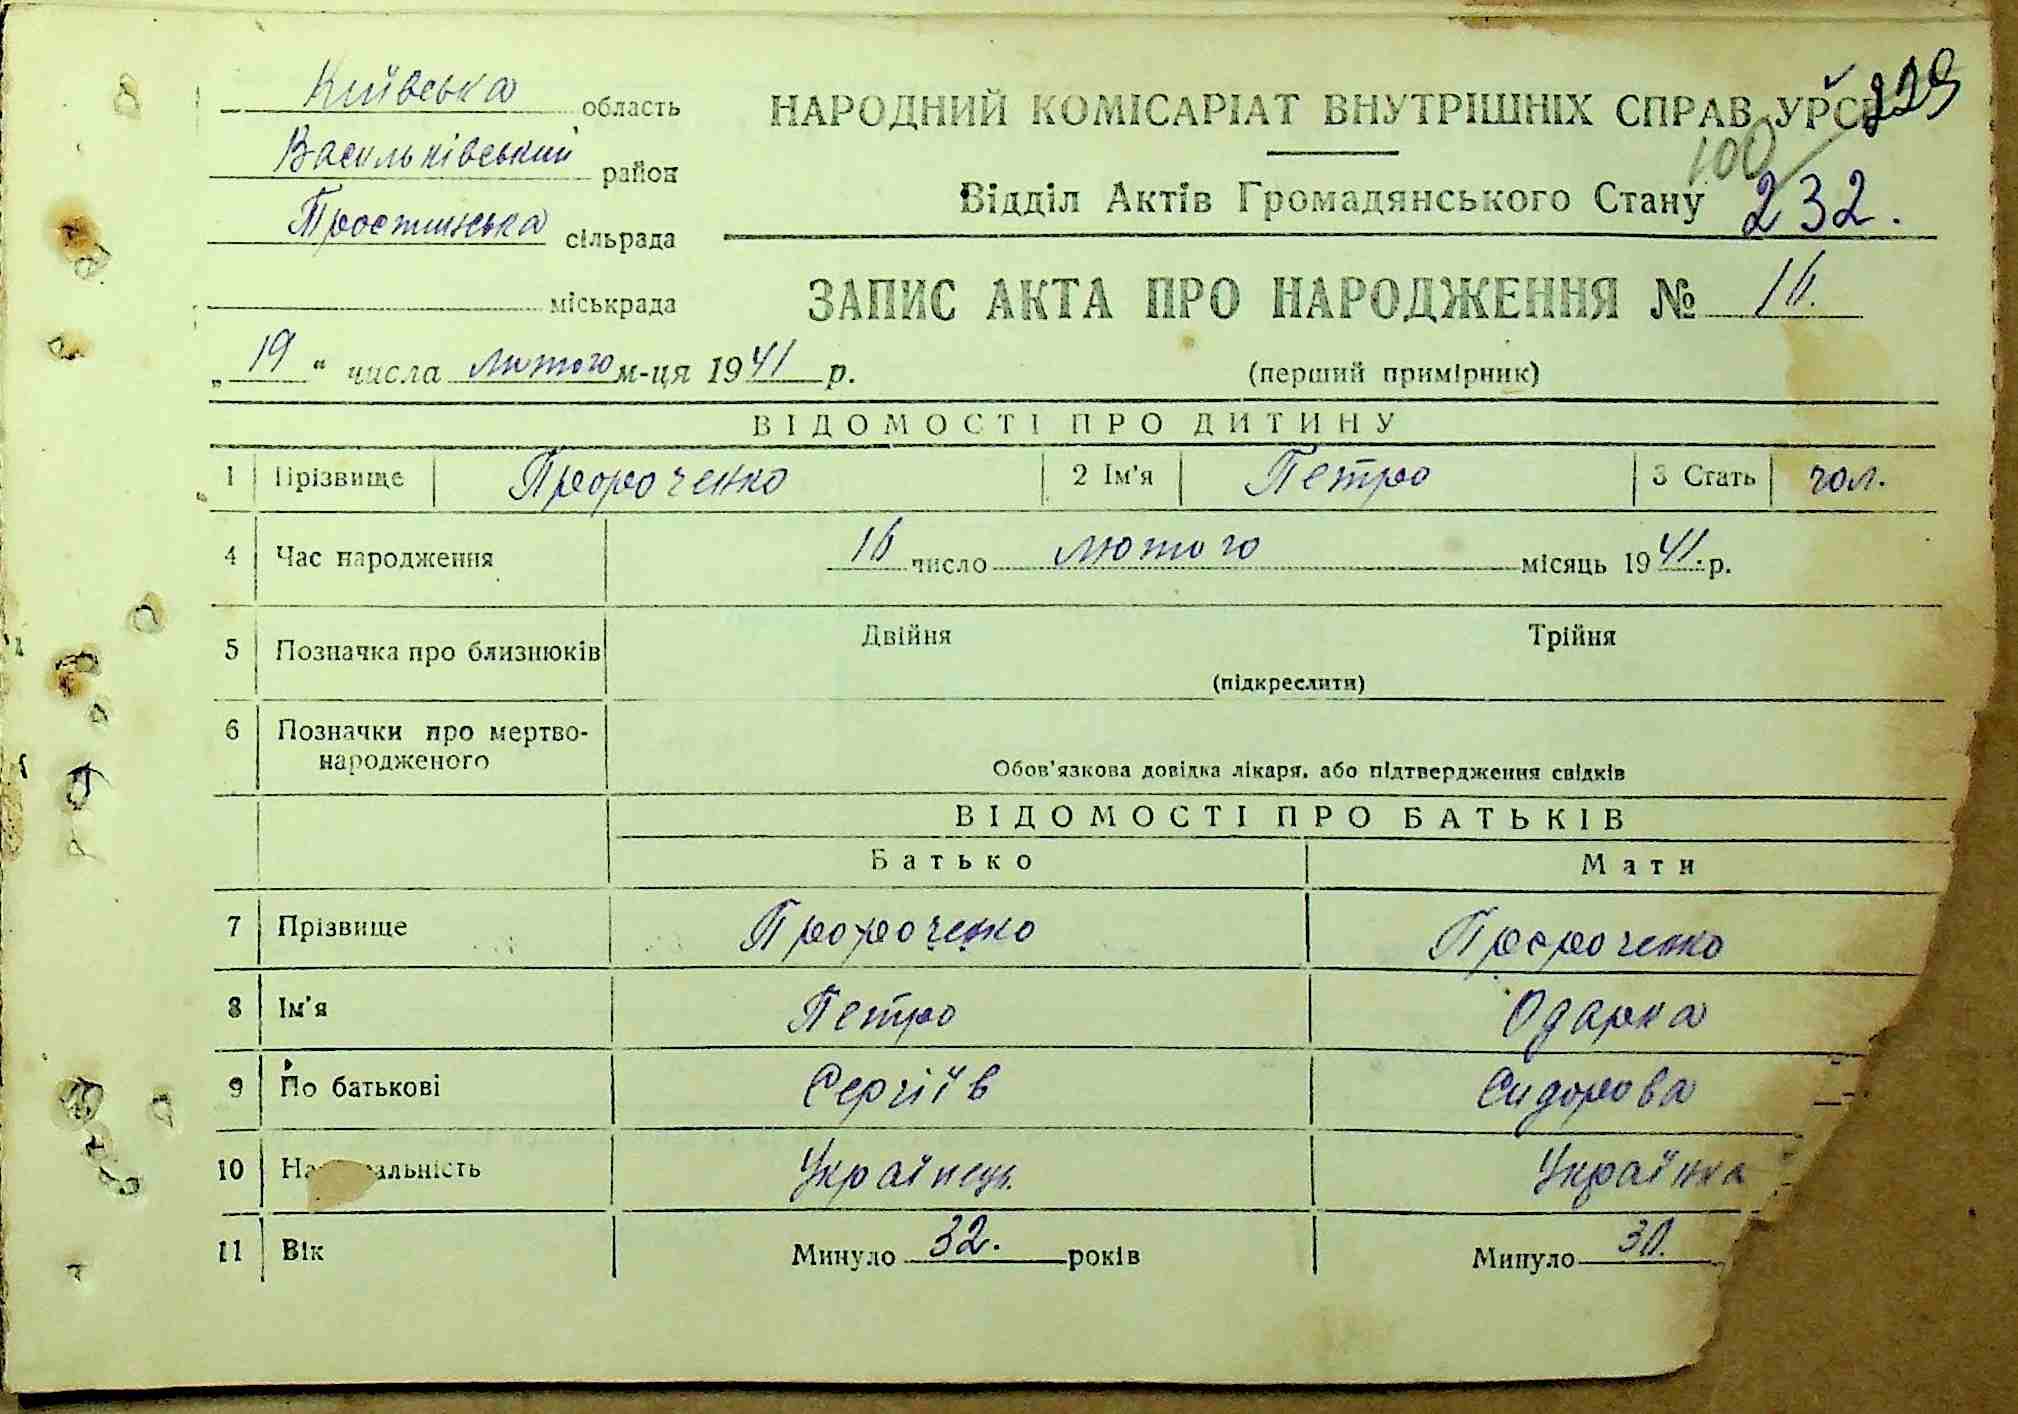 Київська область
Васильківський район
Тростинська сільрада
міськрада
НАРОДНИЙ КОМІСАРІАТ ВНУТРІШНІХ СПРАВ УРСР
229
100
Відділ Актів Громадянського Стану
232.
ЗАПИС АКТА ПРО НАРОДЖЕННЯ № 16.
„19“ числа лютого м-ця 1941 р.
(перший примірник)
ВІДОМОСТІ ПРО ДИТИНУ
1 Прізвище Пророченко 2 Ім'я Петро 3 Стать чол.
4 Час народження 16 число лютого місяць 1941. р.
5 Позначка про близнюків Двійня Трійня
(підкреслити)
6 Позначки про мертво-
народженого
Обов'язкова довідка лікаря, або підтвердження свідків
ВІДОМОСТІ ПРО БАТЬКІВ
Батько Мати
7 Прізвище Пророченко Пророченко
8 Ім'я Петро Одарка
9 По батькові Сергіїв Сидорова
10 На альність Українець Українка
11 Вік Минуло 32. років Минуло 30.